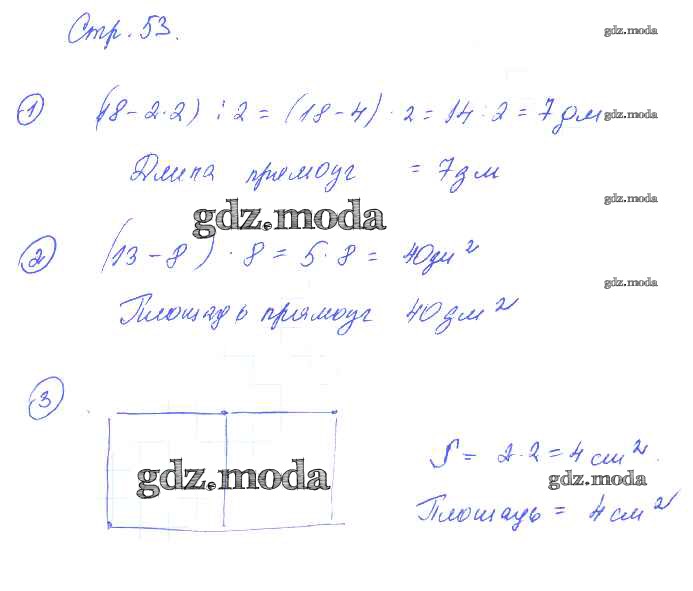 Стр. 53.
gdz.moda
1 (18-2·2) : 2 = (18-4) · 2 = 14 : 2 = 7 дм
gdz.moda
Длина прямоуг = 7 дм
gdz.moda
gdz.moda
2 (13-8) · 8 = 5·8 = 40 дм²
gdz.moda
Площадь прямоуг 40 дм²
3
gdz.moda
S = 2·2 = 4 см².
gdz.moda
Площадь = 4 см²